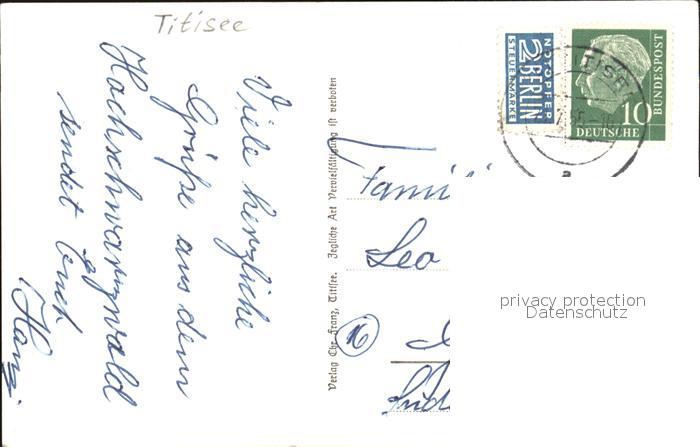 Titisee
Viele herzliche
Grüße aus dem
Hochschwarzwald
sendet Euch
Hans
Verlag Chr. Franz, Titisee. Jegliche Art Vervielfältigung ist verboten
NOTOPFER
2 BERLIN
STEUERMARKE
10
DEUTSCHE
BUNDESPOST
Leo
16
privacy protection
Datenschutz